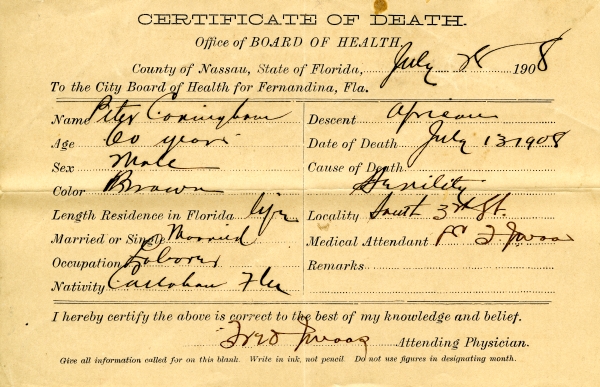 CERTIFICATE OF DEATH.
Office of BOARD OF HEALTH.
County of Nassau, State of Florida, July 28 1908
To the City Board of Health for Fernandina, Fla.
Name Peter Coningham
Age 60 years
Sex Male
Color Brown
Length Residence in Florida life
Married or Single Married
Occupation Laborer
Nativity Callahan Fla
Descent African
Date of Death July 13 1908
Cause of Death
Senility
Locality South 3rd St.
Medical Attendant
Remarks
I hereby certify the above is correct to the best of my knowledge and belief.
Attending Physician.
Give all information called for on this blank. Write in ink, not pencil. Do not use figures in designating month.